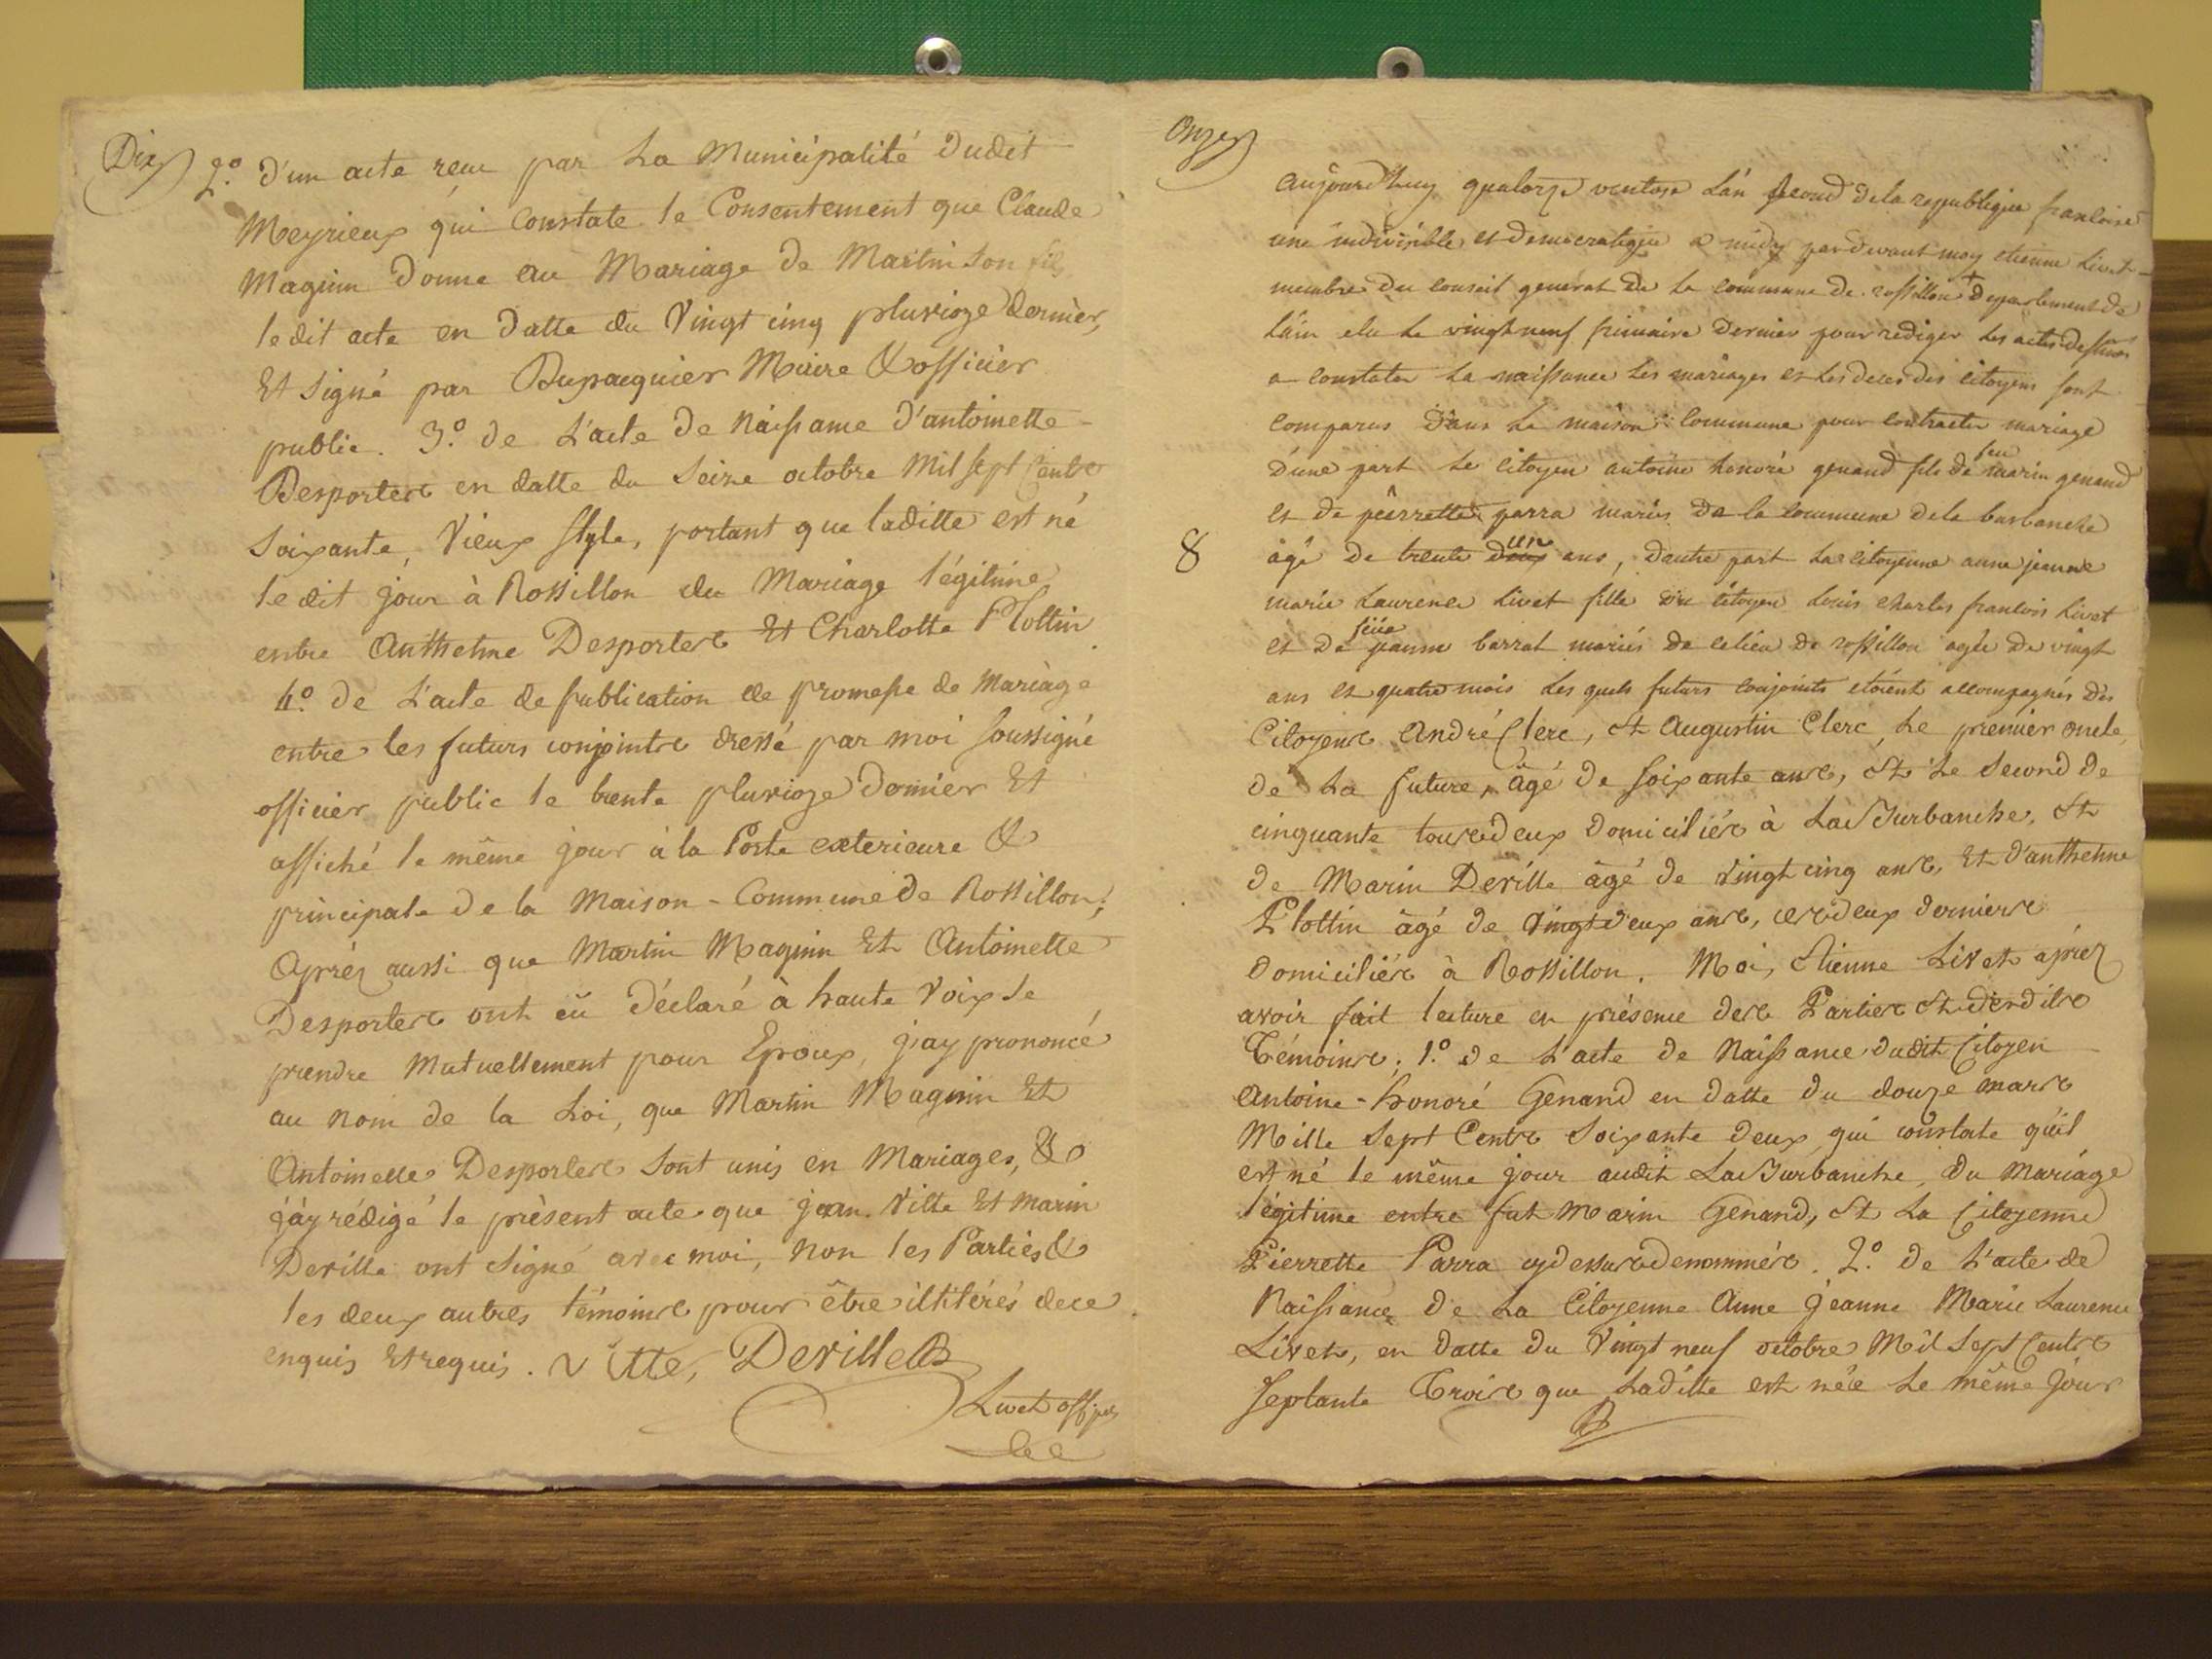 Dix
2.° d'un acte recu par La Municipalité dudit
Meyrieux qui Constate le Consentement que Claude
Maginn donne au Mariage de Martin son fils
ledit acte en datte du Vingt cinq pluvioze dernier,
Et signé par Dupacquier Maire & officier
public. 3.° de L'acte de Naissance d'antoinette
Desportes en datte du Seize octobre Mil sept Cents
Soixante, Vieux style, portant que laditte est né
ledit jour à Rossillon du Mariage légitime
entre Anthelme Desportes Et Charlotte Plottin.
4.° de L'acte de publication de promesse de Mariage
entre les futurs conjoints dressé par moi soussigné
officier public le trente pluvioze dernier Et
affiché le même jour à la Porte exterieure &
principale de la Maison-Commune de Rossillon;
Aprèz aussi que Martin Maginn Et Antoinette
Desportes ont eû déclaré à haute Voix se
prendre Mutuellement pour Epoux, j'ay prononcé
au nom de la Loi, que Martin Maginn Et
Antoinette Desportes Sont unis en Mariages, &
j'ay rédigé le présent acte que jean Vitte Et Marin
Deville ont signé avec moi, non les Parties &
les deux autres témoins pour être illitérés de ce
enquis Et requis. Vitte, Deville
Livet off. pub
Onze
aujourd'huy quatorze ventose L'an second de la republique francoise
une indivisible et democratique a midy pardevant moy etienne Livet
membre du conseil general de la commune de rossillon + departement de
L'ain elu Le vingt neuf frimaire dernier pour rediger Les actes destinés
a constater La naissance Les mariages et Les deces des citoyens sont
comparus dans La maison commune pour contracter mariage
d'une part Le citoyen antoine honoré genand fils de feu marin genand
et de pierrette parra mariés de la commune de la burbanche
8
âgé de trente deux un ans, d'autre part La citoyenne anne jeanne
marie Laurence Livet fille du citoyen Louis charles francois Livet
et de feüe jeanne barrat mariés de ce lieu de rossillon agée de vingt
ans et quatre mois Les quels futurs conjoints etoient accompagnés des
Citoyens André Clerc, Et Augustin Clerc, Le premier oncle
de La future, âgé de soixante ans, Et Le Second de
cinquante tous deux domiciliés à La Burbanche, Et
de Marin Deville âgé de vingt cinq ans, Et d'anthelme
Plottin âgé de vingt deux ans, ces deux derniers
domiciliés à Rossillon. Moi, Etienne Livet aprèz
avoir fait lecture en présence des Parties Et desdits
Témoins; 1.° de L'acte de Naissance dudit Citoyen
Antoine-honoré Genand en datte du douze mars
Mille Sept Cents Soixante deux qui constate qu'il
est né le même jour audit La Burbanche, du Mariage
légitime entre fut Marin Genand, Et La Citoyenne
Pierrette Parra cy dessus denommés. 2.° de L'acte de
Naissance de La Citoyenne Anne Jeanne Marie Laurence
Livet, en datte du Vingt neuf octobre Mil Sept Cents
Septante Trois que Laditte est née Le même Jour